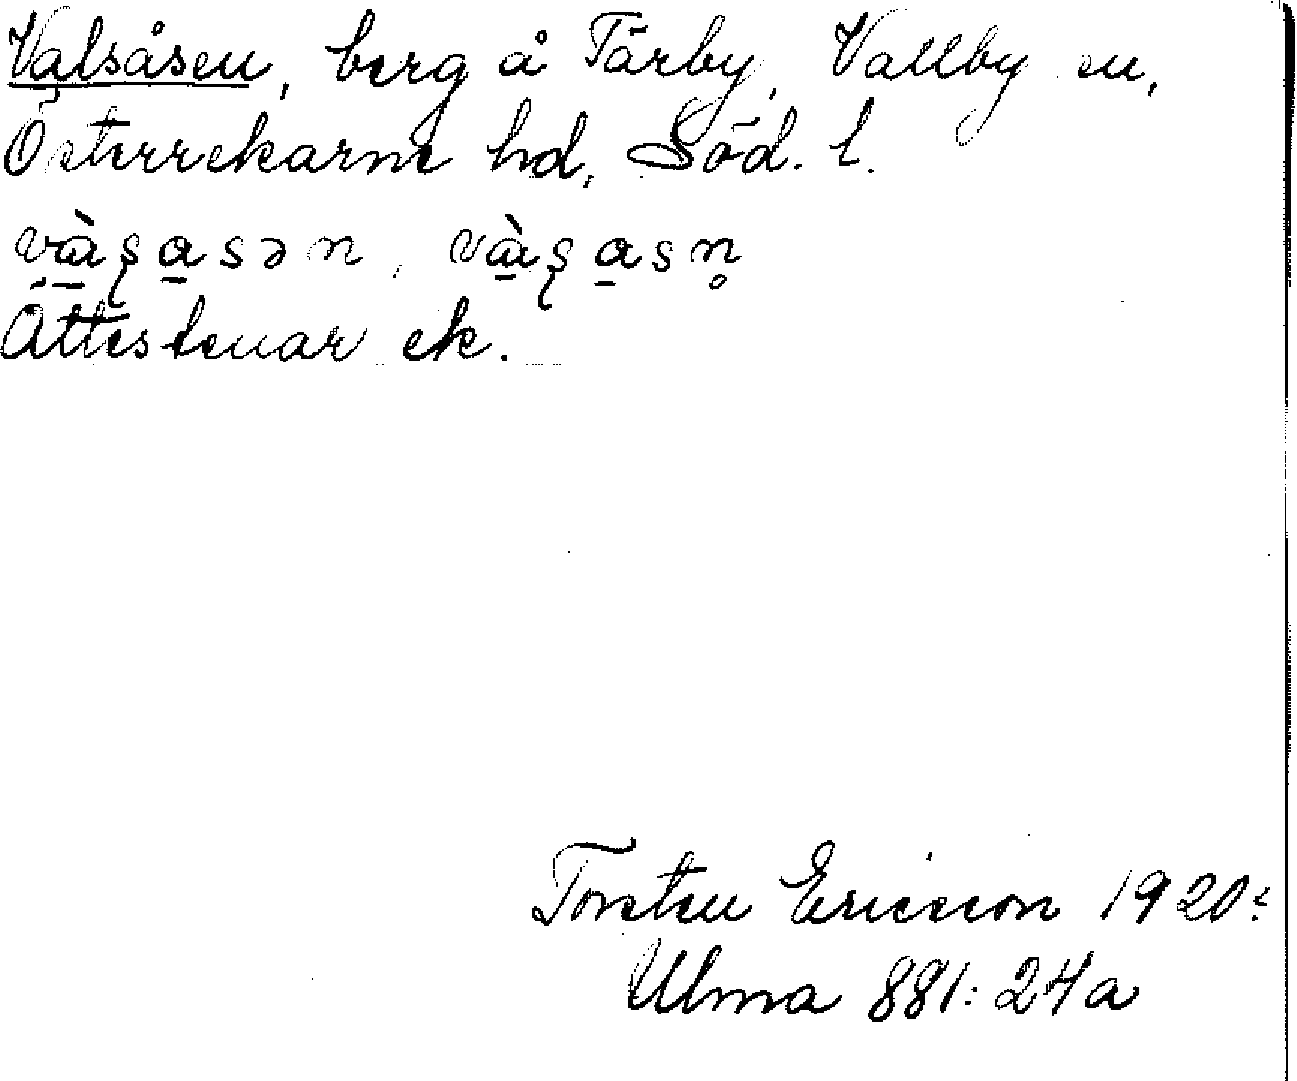 Valsåsen, berg å Tärby, Vallby sn,
Österrekarne hd, Söd. l.
và̱ʂa̱sən, và̱ʂa̱sn̥
Ättestenar ek.
Torsten Ericsson 1920:
Ulma 881:24a